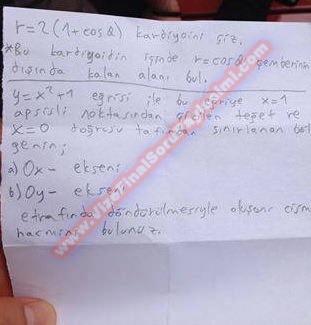 r=2(1+cosθ) kardiyoini çiz.
*Bu kardiyoidin içinde r=cosθ çemberinin
dışında kalan alanı bul.
y=x²+1 eğrisi ile bu eğriye x=1
apsisli noktasından çizilen teğet ve
x=0 doğrusu tarafından sınırlanan böl
genin;
a) Ox- ekseni
b) Oy- ekseni
etrafında döndürülmesiyle oluşan cism
hacmini bulunuz.
www.VizeFinalSoru